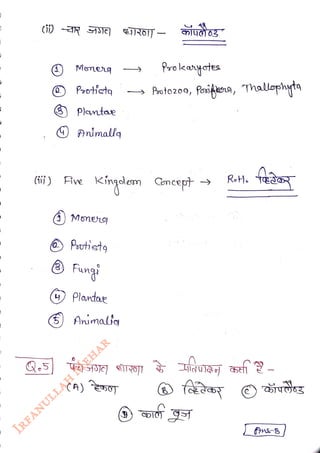 (ii) चार जगत धारणा - कॉपलैण्ड
① Monera → Prokaryotes
② Protista → Protozoa, Porifera, Thallophyta
③ Plantae
④ Animalla
(iii) Five Kingdom Concept → R.H. व्हिटेकर
① Monera
② Protista
③ Fungi
④ Plantae
⑤ Animalia
Q.5 पंचजगत धारणा के प्रतिपादन कर्ता है -
(A) हेकल (B) व्हिटेकर (C) कॉपलैण्ड
(D) कार्ल वूज
Ans-B